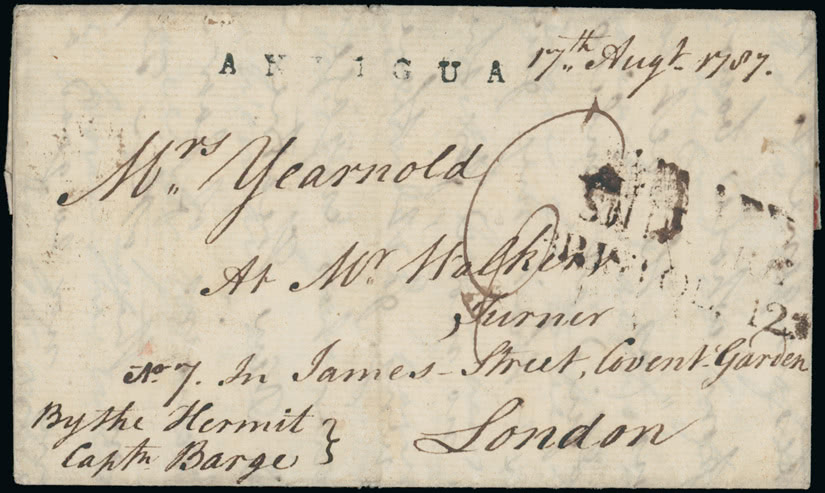 ANTIGUA 17th Augt 1787.
Mrs Yearnold
At Mr Walkers
Turner
No 7. In James-Street, Covent Garden
London
By the Hermit
Captn Barge
BRISTOL